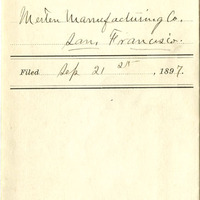 Merten Manufacturing Co.
San Francisco.
Filed Sep 21 st, 1897.